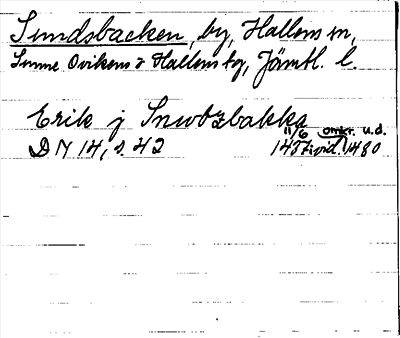 Sundsbacken, by, Hallens sn,
Sunne Ovikens o Hallens tg, Jämtl. l.
Erik j Snwbzbakka
11/6 omkr. u.d.
D N 14, s. 42 1480